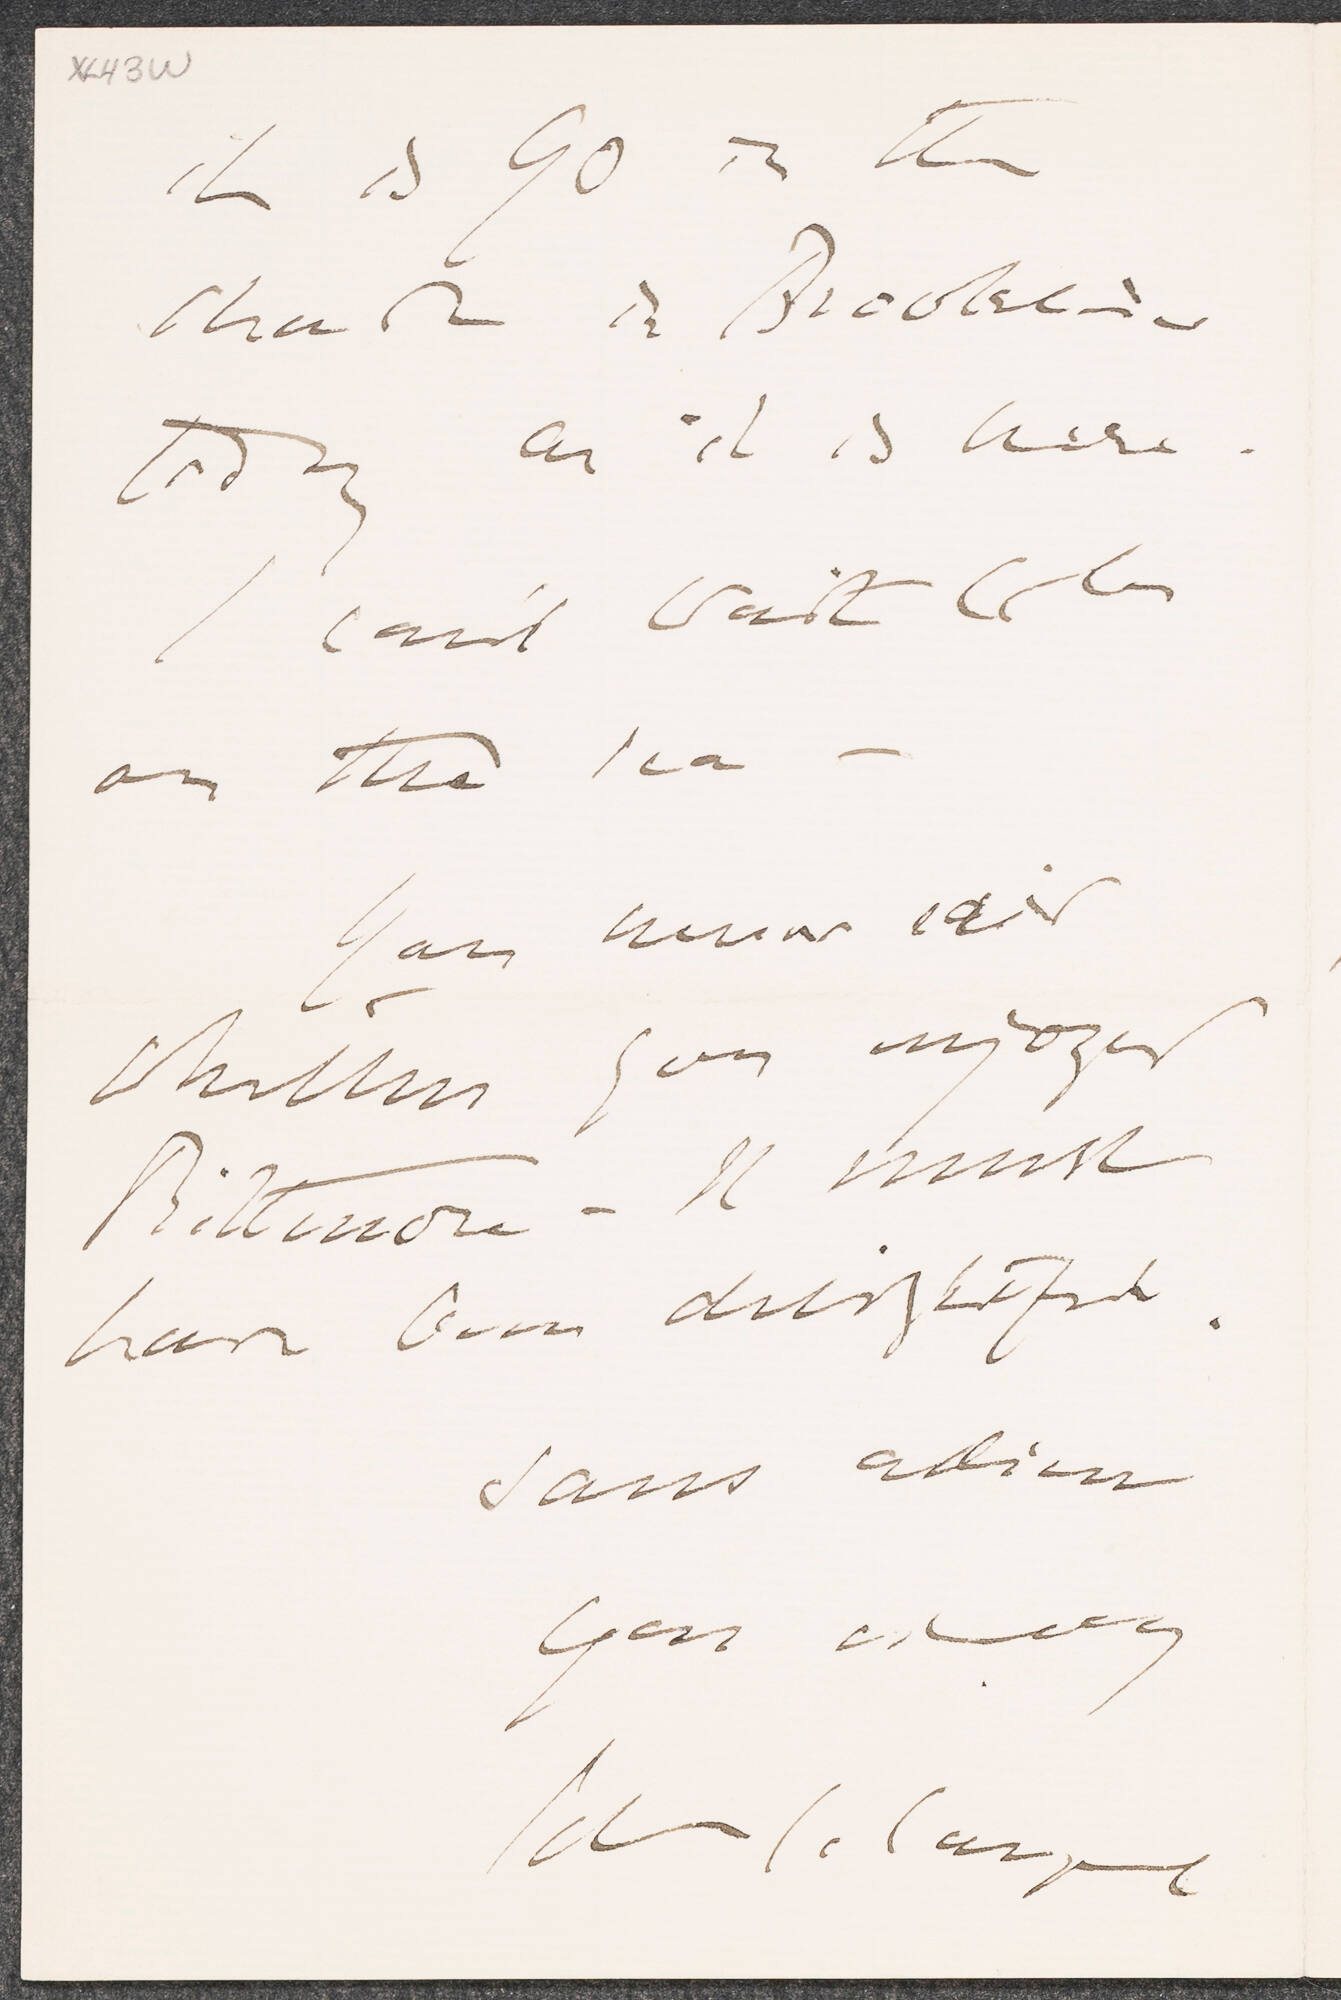 XL43W
it is 90 in the
shade in Brookline
today as it is here.
I can't wait to be
on the sea -
You never said
whether you enjoyed
Biltmore - It must
have been delightful.
Sans adieu
Yours always
John S. Sargent